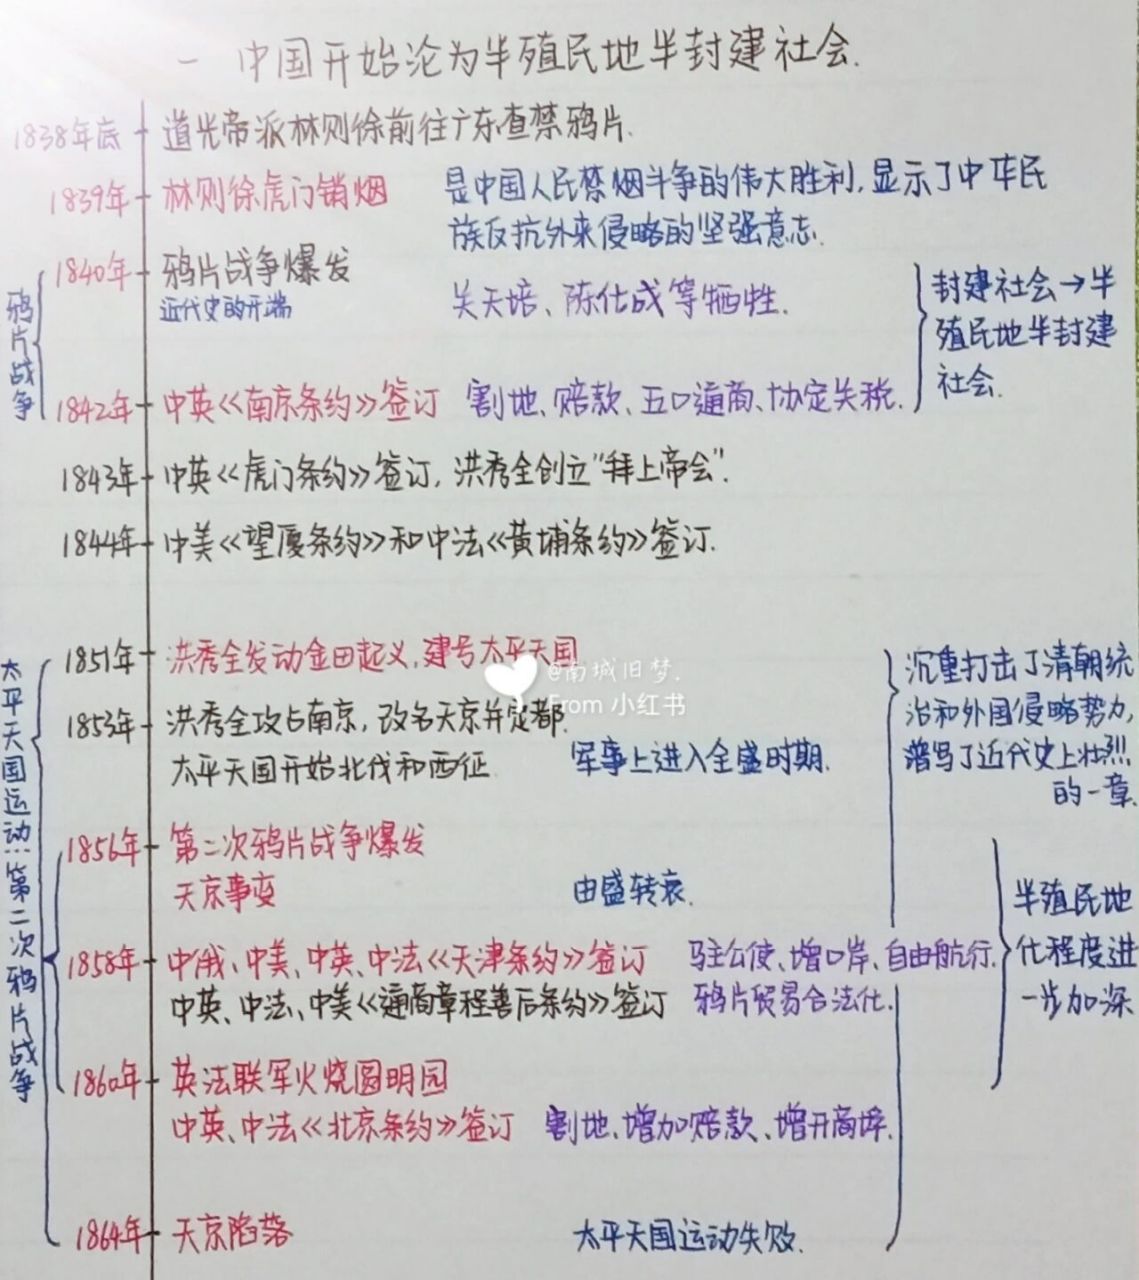 一 中国开始沦为半殖民地半封建社会.
1838年底 道光帝派林则徐前往广东查禁鸦片.
1839年 林则徐虎门销烟 是中国人民禁烟斗争的伟大胜利,显示了中华民
族反抗外来侵略的坚强意志.
鸦片战争
1840年 鸦片战争爆发
近代史的开端
关天培、陈化成等牺牲.
封建社会→半
殖民地半封建
社会.
1842年 中英《南京条约》签订 割地、赔款、五口通商、协定关税.
1843年 中英《虎门条约》签订,洪秀全创立"拜上帝会".
1844年 中美《望厦条约》和中法《黄埔条约》签订.
太平天国运动:第二次鸦片战争
1851年 洪秀全发动金田起义,建号太平天国
@南城旧梦.
From 小红书
1853年 洪秀全攻占南京,改名天京并定都.
太平天国开始北伐和西征. 军事上进入全盛时期.
沉重打击了清朝统
治和外国侵略势力,
谱写了近代史上壮烈
的一章.
1856年 第二次鸦片战争爆发
天京事变 由盛转衰.
1858年 中俄、中美、中英、中法《天津条约》签订 驻公使、增口岸、自由航行.
中英、中法、中美《通商章程善后条约》签订 鸦片贸易合法化.
半殖民地
化程度进
一步加深
1860年 英法联军火烧圆明园
中英、中法《北京条约》签订 割地、增加赔款、增开商埠.
1864年 天京陷落 太平天国运动失败.